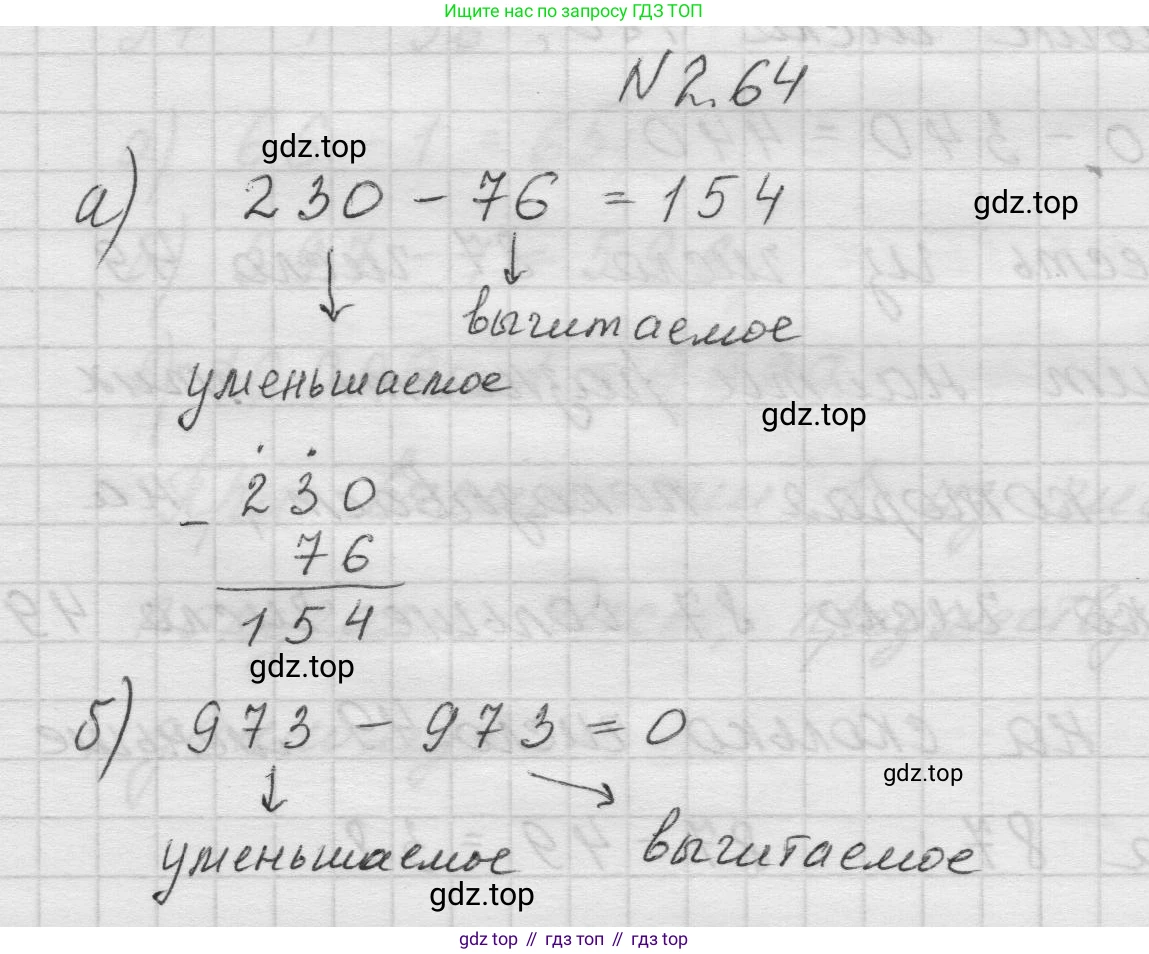 Ищите нас по запросу ГДЗ ТОП
N 2.64
gdz.top
а) 230 - 76 = 154
gdz.top
вычитаемое
уменьшаемое
gdz.top
- 230
76
154
gdz.top
б) 973 - 973 = 0
gdz.top
уменьшаемое вычитаемое
gdz.top
gdz top // гдз топ // гдз top